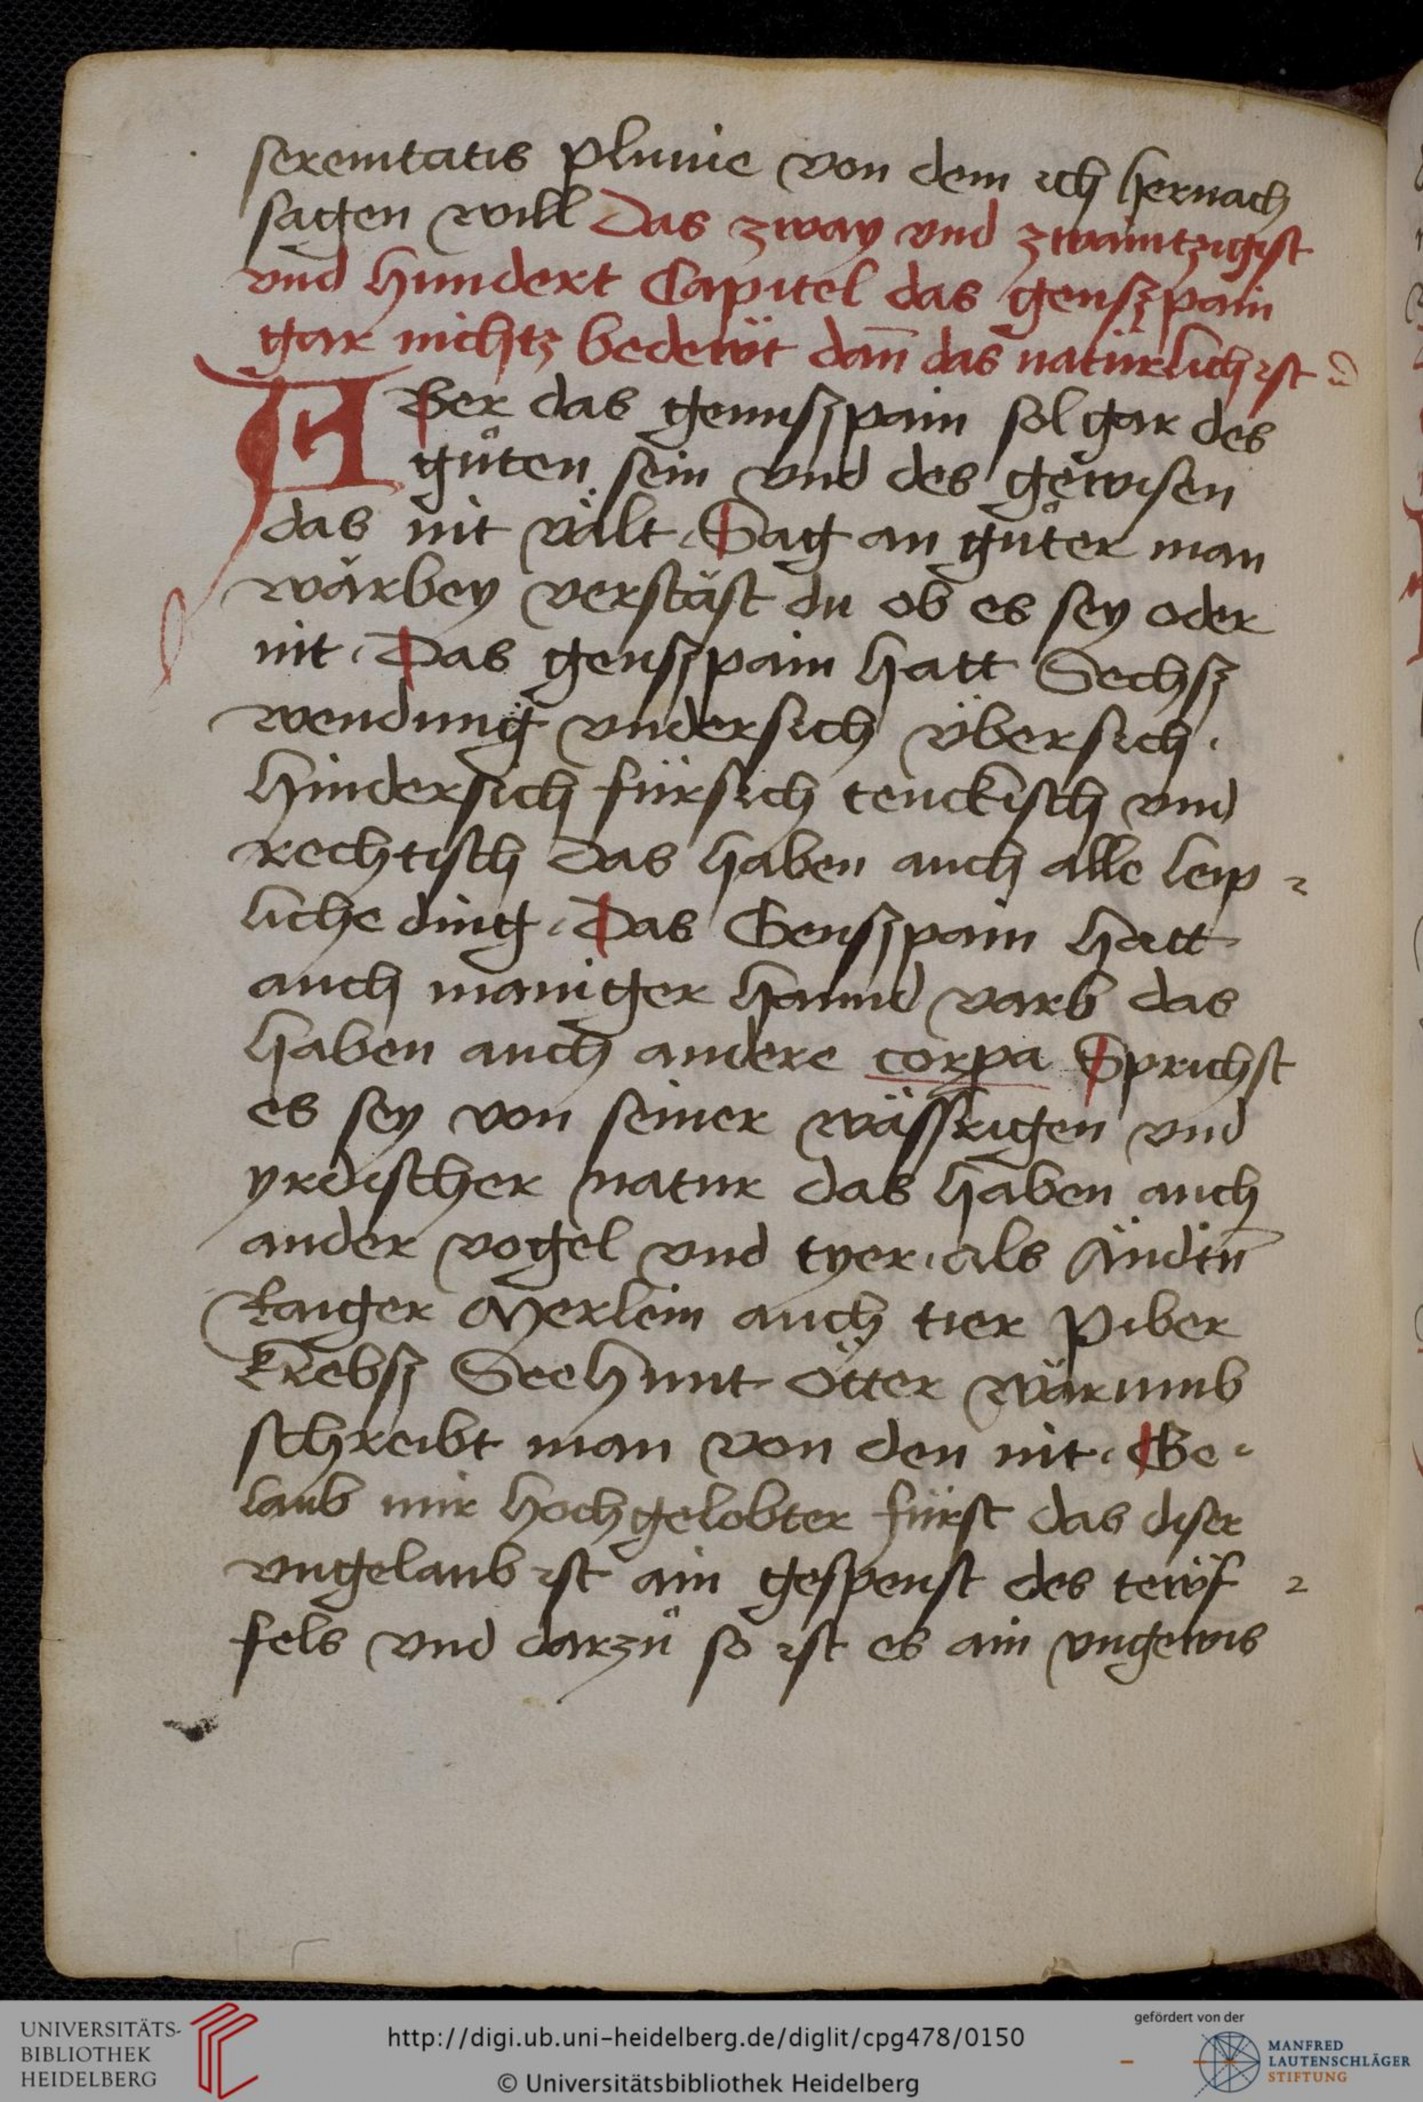 seremtatis pluuie von dem ich hernach
sagen will Das zway vnd zwaintzigist
vnd hundert Capitel das genszpain
gar nichtz bedewt dan̄ das natürlich ist
ABer das gennszpain sol gar des
gůten sein vnd des gewisen
das nit vält. Sag an gůter man
wärbey verstäst du ob es sey oder
nit. Das genszpain hatt Sechsz
wendung vndersich übersich.
hindersich fürsich tenckisch vnd
rechtisch das haben auch alle leip-
liche ding. Das Genszpain hatt
auch maniger hannd varb das
haben auch andere corpa Sprichst
es sey von seiner wässrigen vnd
yrdischer natur das haben auch
ander vogel vnd tyer. als Ändtn̄
Raiger Merlein auch tier piber
krebsz Seehunt ötter wärumb
schreibt man von den nit. Ge-
laub mir hochgelobter fürst das diser
vngelaub ist ain gespenst des tewf-
fels vnd darzů so ist es ain vngewis
UNIVERSITÄTS-
BIBLIOTHEK
HEIDELBERG
http://digi.ub.uni-heidelberg.de/diglit/cpg478/0150
© Universitätsbibliothek Heidelberg
gefördert von der
MANFRED
LAUTENSCHLÄGER
STIFTUNG